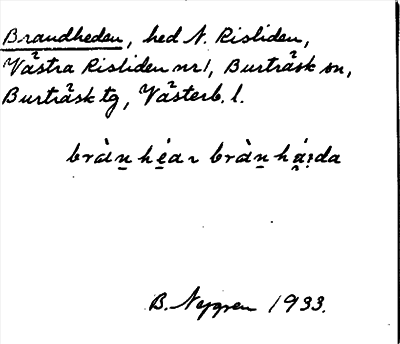 Brandheden, hed N. Risliden,
Västra Risliden nr 1, Burträsk sn,
Burträsk tg, Västerb. l.
bràn̲ hé̲aɿ bràn̲ há̤ı̣da
B. Nygren 1933.